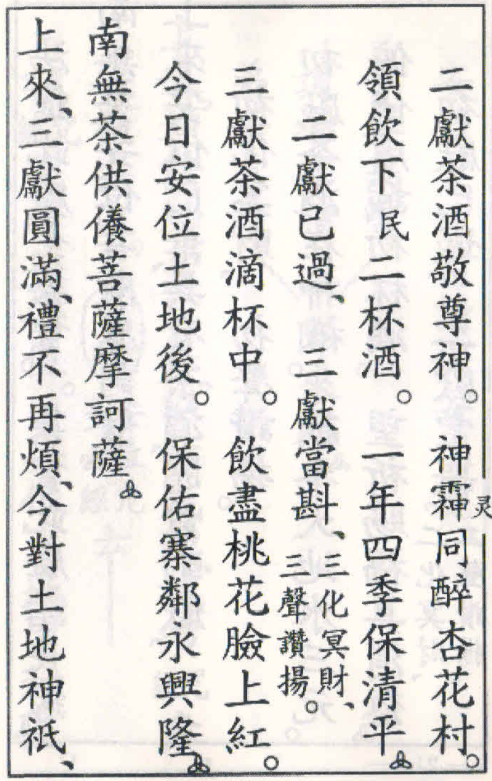 二獻茶酒敬尊神。神霝同醉杏花村。
灵
領飲下民二杯酒。一年四季保清平
二獻已過、三獻當斟、三化冥財、
三聲讚揚。
三獻茶酒滴杯中。飲盡桃花臉上紅。
今日安位土地後。保佑寨鄰永興隆
南無茶供儀菩薩摩訶薩
上來、三獻圓滿、禮不再煩、今對土地神祇、